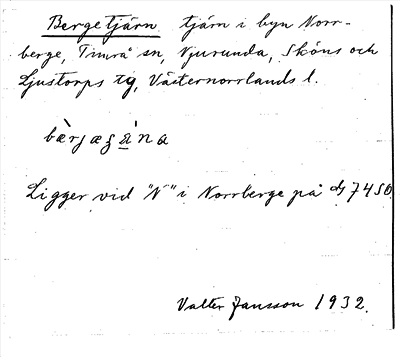 Bergetjärn tjärn i byn Norr-
berge, Timrå sn, Njurunda, Sköns och
Ljustorps tg, Västernorrlands l.
Ligger vid "N" i Norrberge på 7450.
Valter Jansson 1932.